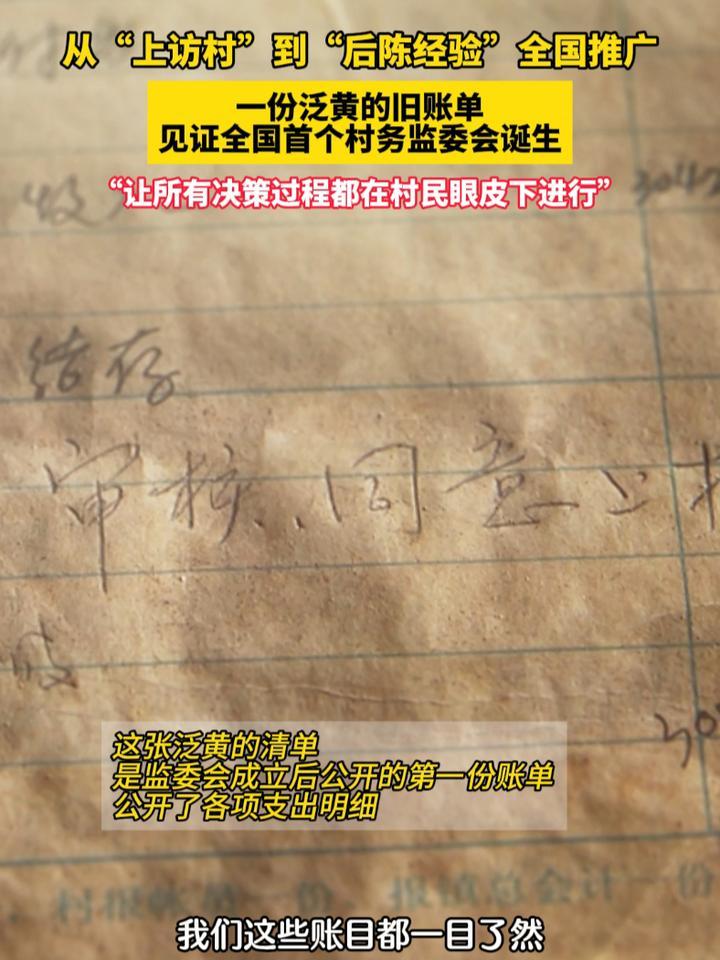 从“上访村”到“后陈经验”全国推广
一份泛黄的旧账单
见证全国首个村务监委会诞生
“让所有决策过程都在村民眼皮下进行”
结存
审核、同意上
这张泛黄的清单
是监委会成立后公开的第一份账单
公开了各项支出明细
村报帐第一份，报镇总会计一份
我们这些账目都一目了然